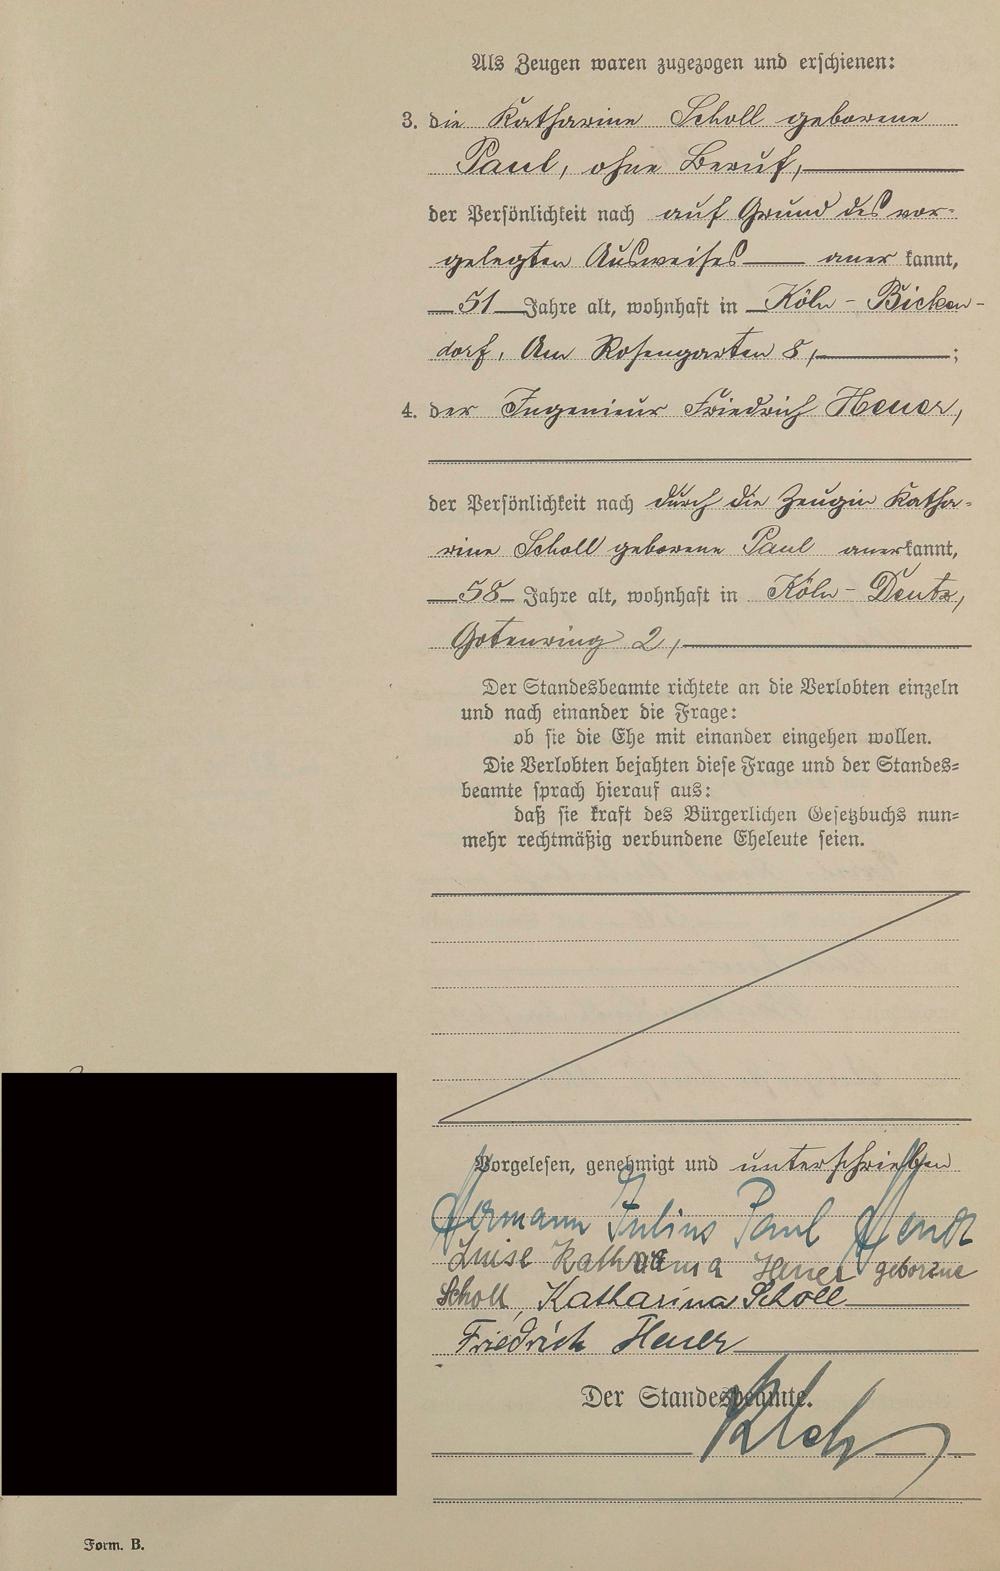 Als Zeugen waren zugezogen und erschienen:
3. die Katharine Scholl geborene
Paul, ohne Beruf,
der Persönlichkeit nach auf Grund des vor-
gelegten Ausweises aner kannt,
51 Jahre alt, wohnhaft in Köln - Bicken-
dorf, Am Rosengarten 8, ;
4. der Ingenieur Friedrich Heuer,
der Persönlichkeit nach durch die Zeugin Katha-
rine Scholl geborene Paul anerkannt,
58 Jahre alt, wohnhaft in Köln - Deutz,
Gotenring 2,
Der Standesbeamte richtete an die Verlobten einzeln
und nach einander die Frage:
ob sie die Ehe mit einander eingehen wollen.
Die Verlobten bejahten diese Frage und der Standes-
beamte sprach hierauf aus:
daß sie kraft des Bürgerlichen Gesetzbuchs nun-
mehr rechtmäßig verbundene Eheleute seien.
Vorgelesen, genehmigt und unterschrieben
Hermann Julius Paul Heuer
Luise Katharina Heuer geborene
Scholl, Katharina Scholl
Friedrich Heuer
Der Standesbeamte.
Form. B.